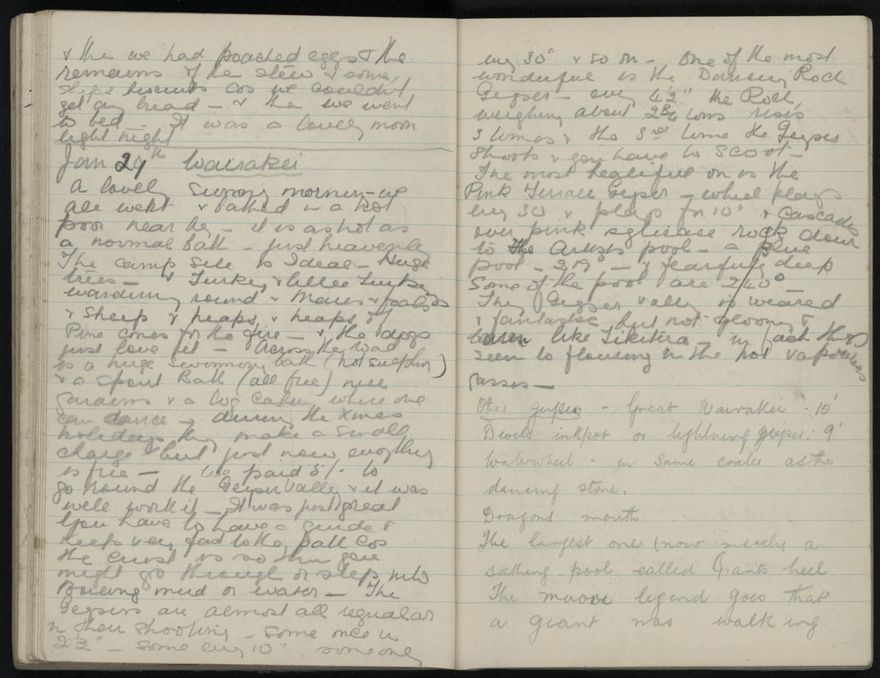 & the we had poached eggs & the
remains of the stew & some
ships biscuits cos we couldn't
get any bread - & then we went
to bed - It was a lovely moon
light night
Jan 24th Wairakei
A lovely sunny morning - we
all went & bathed in a hot
pool near by - it is as hot as
a normal bath - just heavenly
The camp site is Ideal - Huge
trees - & Turkey & little Turkeys
wandering round & Mares & foals
& Sheep & heaps & heaps of
Pine cones for the fire - & the dogs
just love it - Across the road
is a huge swimming bath (hot sulphur)
& a spout Bath (all free) nice
gardens & a Log Cabin where one
can dance - during the Xmas
holidays they make a small
charge but just now everything
is free - We paid 5/- to
go round the Geyser Valley & it was
well worth it - It was just great
You have to have a guide &
keep very
the crust is so thin you
might go through or step into
Boiling mud or water - The
Geysers are almost all regular
in their shooting - some once in
2½" - some every 10" some only
every 30" & so on - One of the most
wonderful is the Dancing Rock
Geyser - every 4½" the Rock,
weighing about 2¾ tons rises
3 times & the 3rd time the Geyser
shoots & you have to scoot -
The most beautiful on is the
Pink Terrace Geyser - which plays
every 30 & plays for 10" & cascades
over pink rock down
to the Artists pool - a blue
pool - 219° - & fearfully deep
Some of the pool are 240°
The Geyser valley is weared
& fantastic but not gloomy &
barren like Tikitere - in fact things
seem to flourish in the hot vaporous
gasses -
Other geysers - Great Wairakei - 10'
Devils inkpot or lightning geyser. 9'
Waterwheel - in same crater as the
dancing stone.
Dragons mouth
The largest one (now merely a
pool called Giants heel
The maori legend goes that
a giant was walking